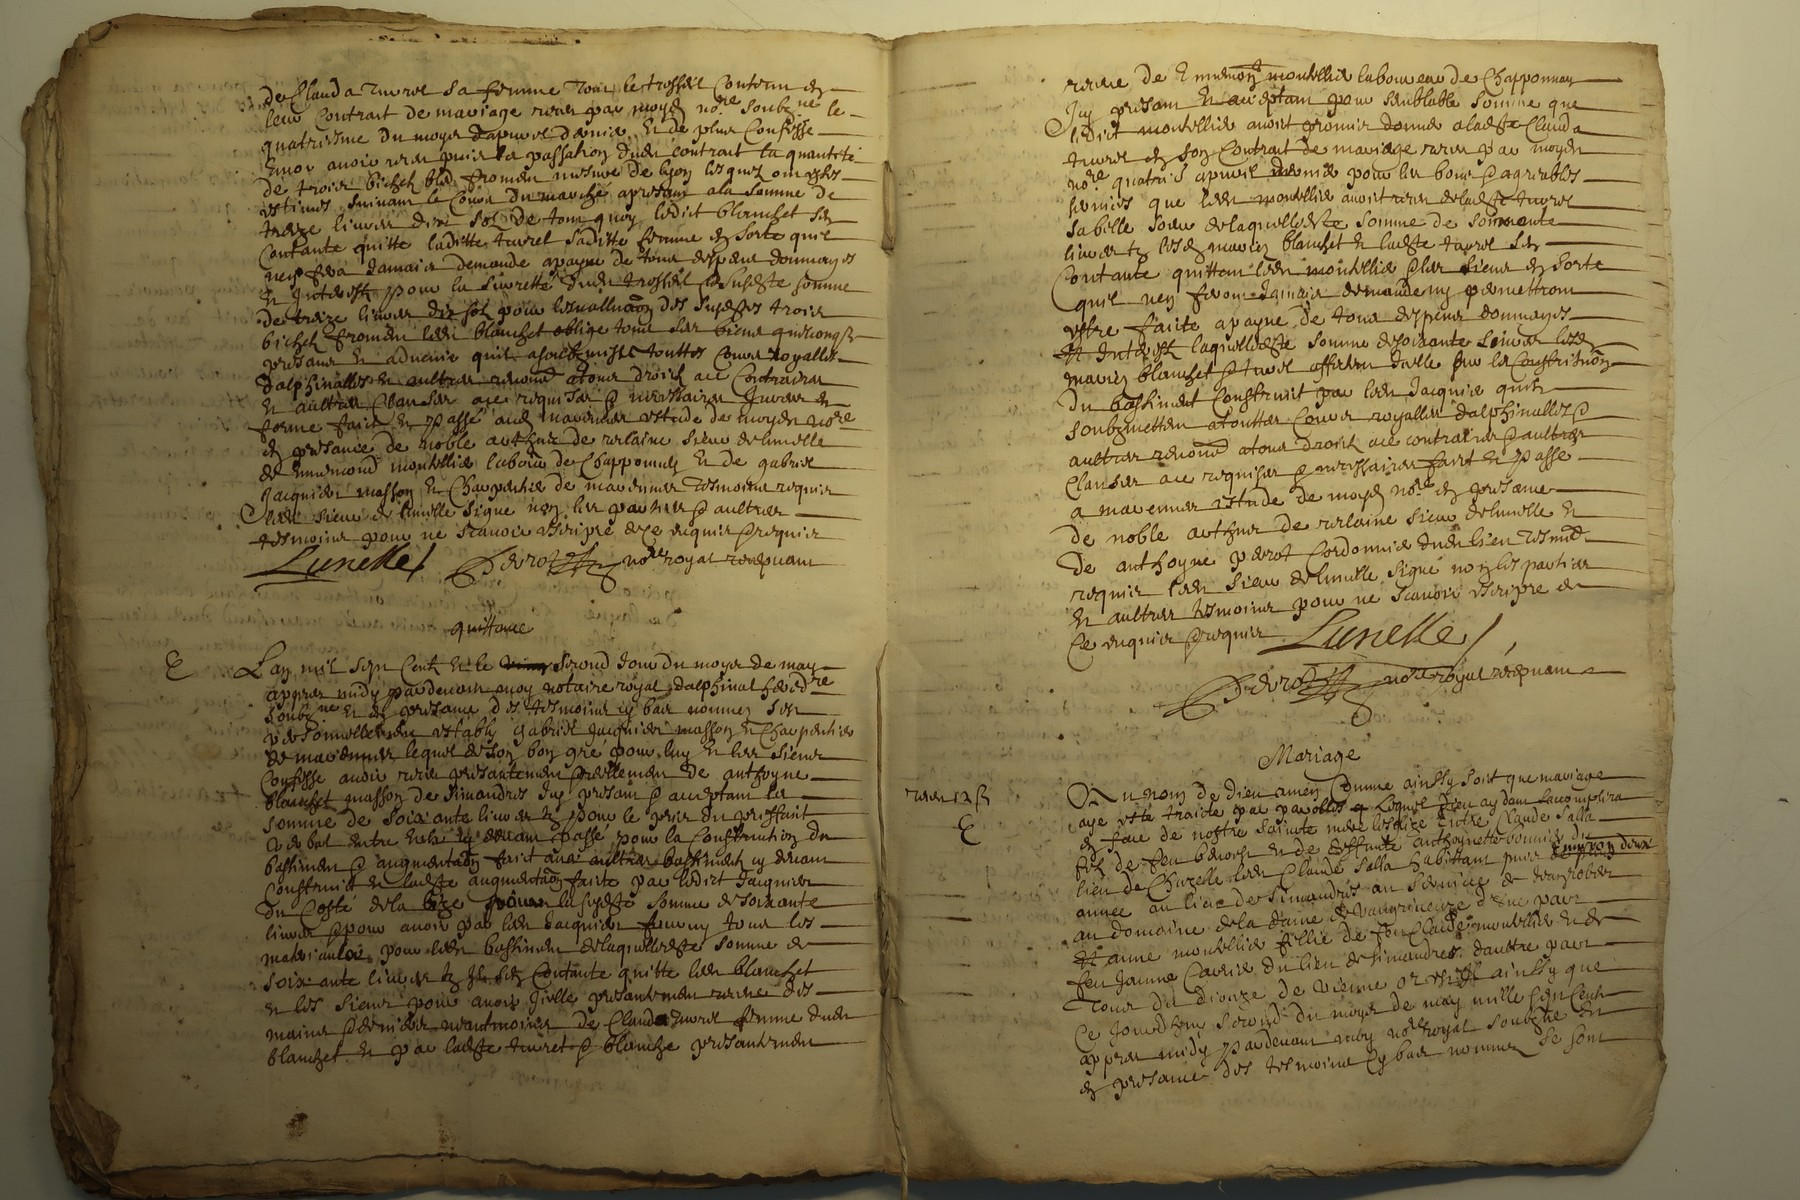 de Clauda turrel sa femme tout le trossel contenu en
leur contrat de mariage receu par moyd no.re soub.ne le
quatriesme du moys d'apvril dernier. Et de plus confesse
avoir receu puis la passation dudit contrat la quantité
de trois bichets bled froment mesure de lyon lesquels ont estés
estimés suivant le cours du marché apresant a la somme de
treze livres dix solz de tout quoy ledit blanchet se
contante quitte laditte turrel saditte femme en sorte quil
ney fera jamais demande apayne de tous despens dommages
et interestz pour la seuretté dudit trossel et susdste somme
de treize livres dix solz pour des susdttes trois
bichetz froment ledit blanchet oblige tous ses biens quelconq
presans et advenir quil a soubzmis a touttes cours royalles
dalphinalles et aultres renoncé a tous droits a ce contraires
et aultres clauses a ce requises & necessaires
forme fait et passé audit marennes estude de moyd no.re
en presance de noble arthus de verlaine sieur de lunelle
de ennemond montellier laboureur de Chapponnay et de gabriel
Jacquier masson et Charpentier de marennes tesmoins requis
ledit sieur de lunelle signé non les parties & aultres
tesmoins pour ne scavoir escripre de ce enquis & requis
Lunelle / Perot no.re royal recepvant
quittance
E Lan mil sept centz et le second jour du moys de may
appres midy pardevant moy notaire royal dalphinal heredre
soubz.ne et en presance des tesmoins cy bas nommez sest
personnellement estably gabriel Jacquier masson et Charpentier
de marennes lequel de son bon gré pour luy et les siens
confesse avoir receu presantement & reellement de anthoyne
blanchet masson de simandres icy presant & acceptant la
somme de soixante livres tz pour le prix du prixfait
verbal entre eulx cy devant passé pour la construction du
bastiment & augmentaon fait aux aultres bastiment cy devant
construit et ladste augmentaon faite par ledict Jacquier
du costé de la bize la susdste somme de soixante
livres & pour avoir par ledit Jacquier fourny tous les
materiaulx pour ledit bastiment de laquelledste somme de
soixante livres tz il se contante quitte ledit blanchet
et les siens pour avoir jcelle presantement receue des
mains & deniers neantmoins de Clauda turrel femme dudit
blanchet et par ladste turrel & blanchet presantement
receue de Ennemond montellier laboureur de Chapponnay
Icy presant et acceptant pour semblable somme que
ledict montellier avoit promis donner a ladste Clauda
turrel en son contrat de mariage receu par moyd
no.re quatrie apvril dernier pour les bons & agreables
services que ledit montellier avoit receu de ladste turrel
sa belle soeur de laquelledste somme de soixante
livres tz lesd mariez blanchet et ladste turrel se
contante quittant ledit montellier & les siens en sorte
quil ney feront jamais demande ny permettront
estre faite apayne de tous despens dommages
et interestz laquelledste somme de soixante livres lesd
mariez blanchet & turrel affectent icelle sur la construction
du bastiment construit par ledit Jacquier quilz
soubzmettent a touttes cours royalles dalphinalles &
aultres renoncé a tous droits a ce contraires & aultres
clauses a ce requises & necessaires fait et passé
a marennes estude de moyd no.re en presance
de noble arthus de verlaine sieur de lunelle et
de anthoyne perot Cordonnier dudit lieu tesmoins
requis ledit sieur de lunelle signé non les parties
et aultres tesmoins pour ne scavoir escripre de
ce enquis & requis Lunelle /
Perot no.re royal recepvant
Mariage
Au nom de dieu amen comme ainssy soit que mariage
aye esté traité par parolles & lequel dieu aydant saccomplira
E en face de nostre saincte mere lesglize entre Claude salla
filz de feu benoist et de deffunte anthoynette bonnier du
lieu de Chuzelle ledit Claude salla habittant puis environ deux
années au lieu de simandres au service de
au domaine de la dame de vaugrineuze d'une part
Et anne montellier fillie de feu Claude montellier et de
feu Janne Carrier du lieu de simandres d'aultre part
Tous du dioceze de vienne or est il ainssy que
ce jourdhuy second du moys de may mille sept centz
appres midy pardevant moy no.re royal soubzne et
en presance des tesmoins cy bas nommez se sont